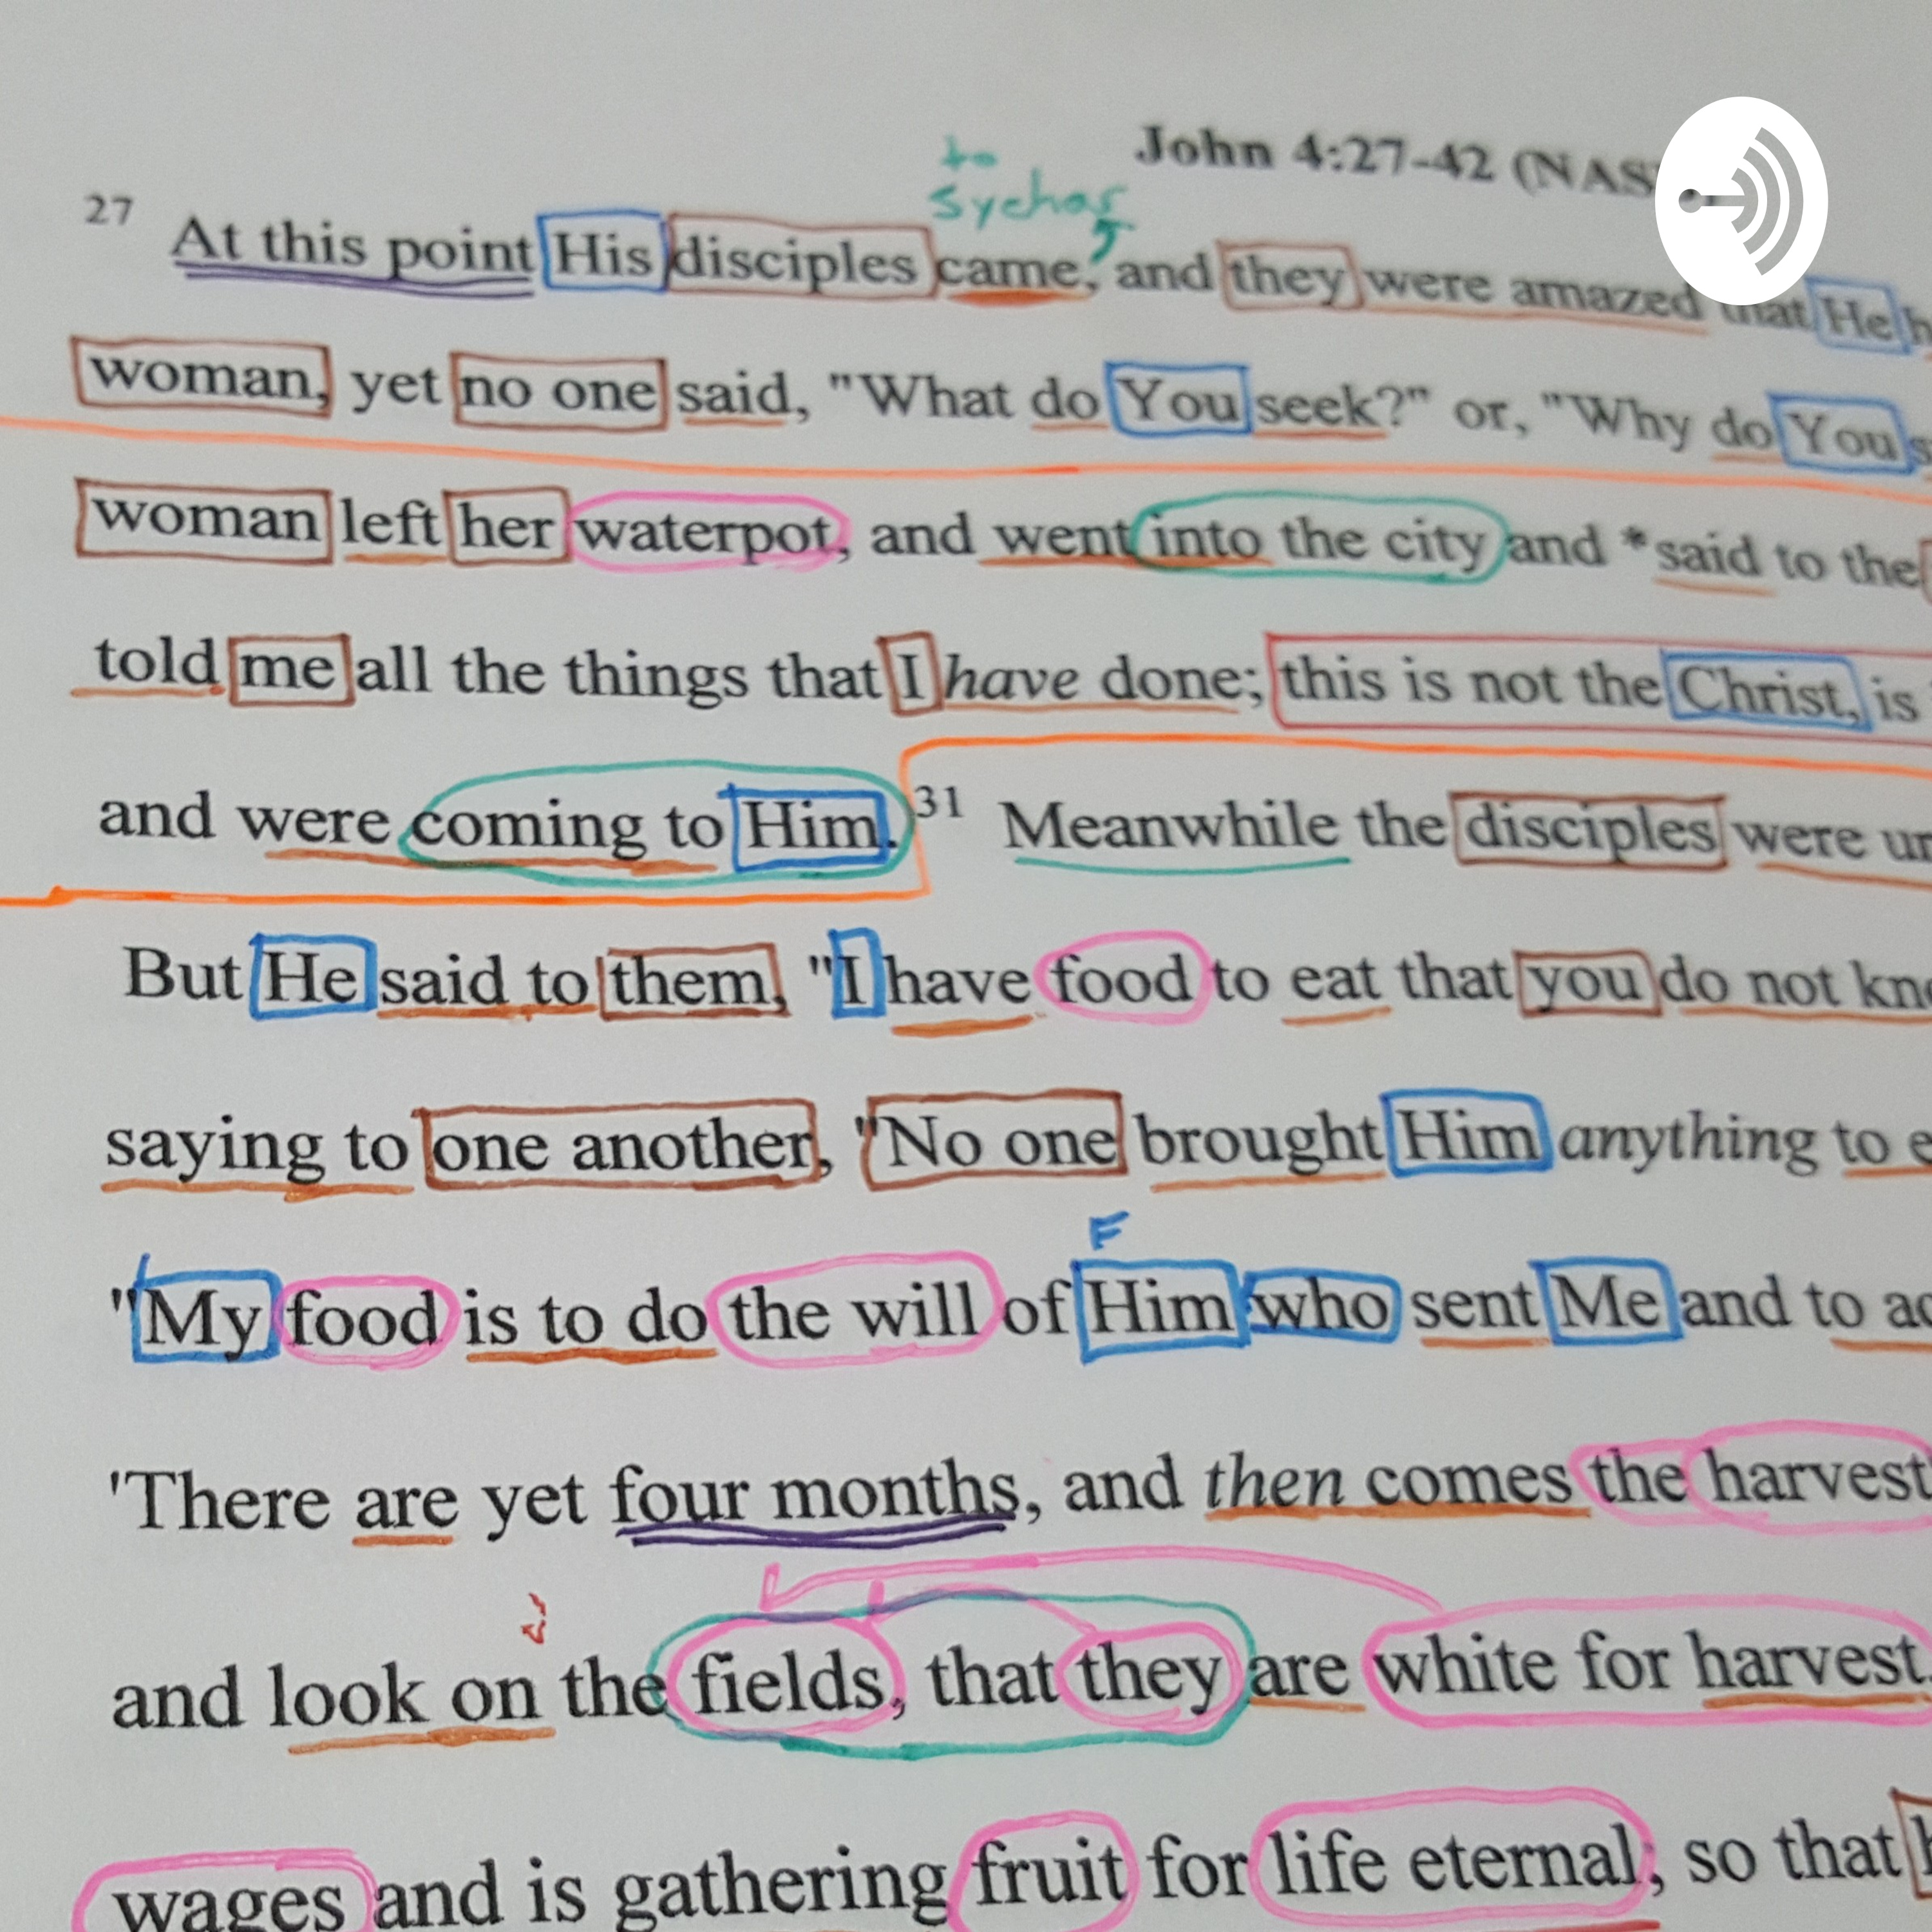 John 4:27-42 (NAS
to
Sychar
27 At this point His disciples came, and they were amazed that He
woman, yet no one said, "What do You seek?" or, "Why do You
woman left her waterpot, and went into the city and *said to the
told me all the things that I have done; this is not the Christ, is
and were coming to Him. 31 Meanwhile the disciples were
But He said to them, "I have food to eat that you do not
saying to one another, "No one brought Him anything to
F
"My food is to do the will of Him who sent Me and to
'There are yet four months, and then comes the harvest
and look on the fields, that they are white for harvest.
wages and is gathering fruit for life eternal; so that